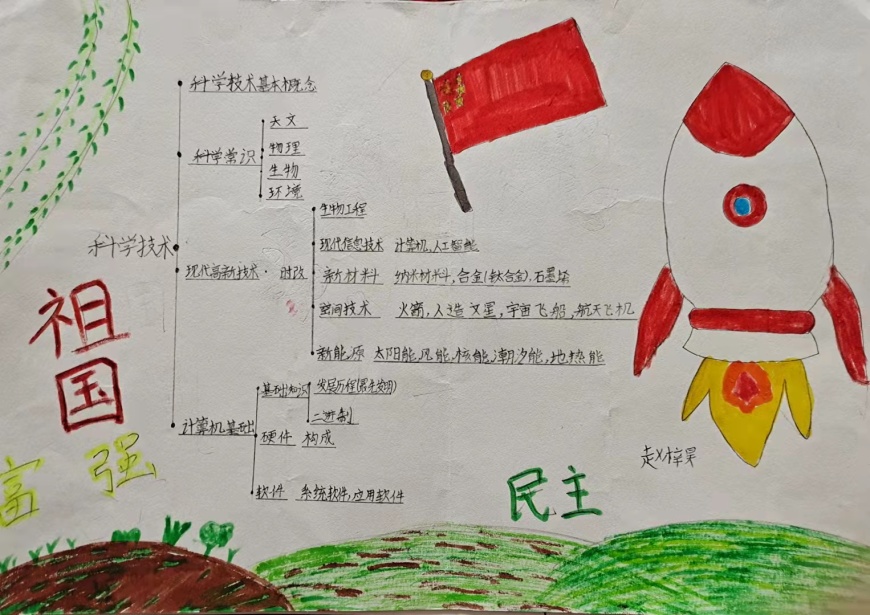 科学技术基本概念
天文
科学常识
物理
生物
环境
生物工程
科学技术
现代信息技术 计算机,人工智能
现代高新技术· 时政
新材料 纳米材料,合金(钛合金).石墨烯
空间技术 火箭,人造卫星,宇宙飞船,航天飞机
祖国
新能源 太阳能,风能,核能,潮汐能,地热能
基础知识 发展历程
二进制
计算机基础
硬件 构成
富强
软件 系统软件,应用软件
赵梓昊
民主